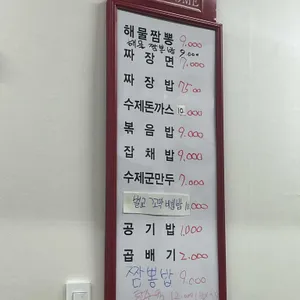 해물짬뽕 9,000
해물 짬뽕밥 9,000
짜장면 7,000
짜장밥 7,500
수제돈까스 10,000
볶음밥 9,000
잡채밥 9,000
수제군만두 7,000
벌교 꼬막비빔밥 10,000
공기밥 1,000
곱배기 2,000
짬뽕밥 9,000